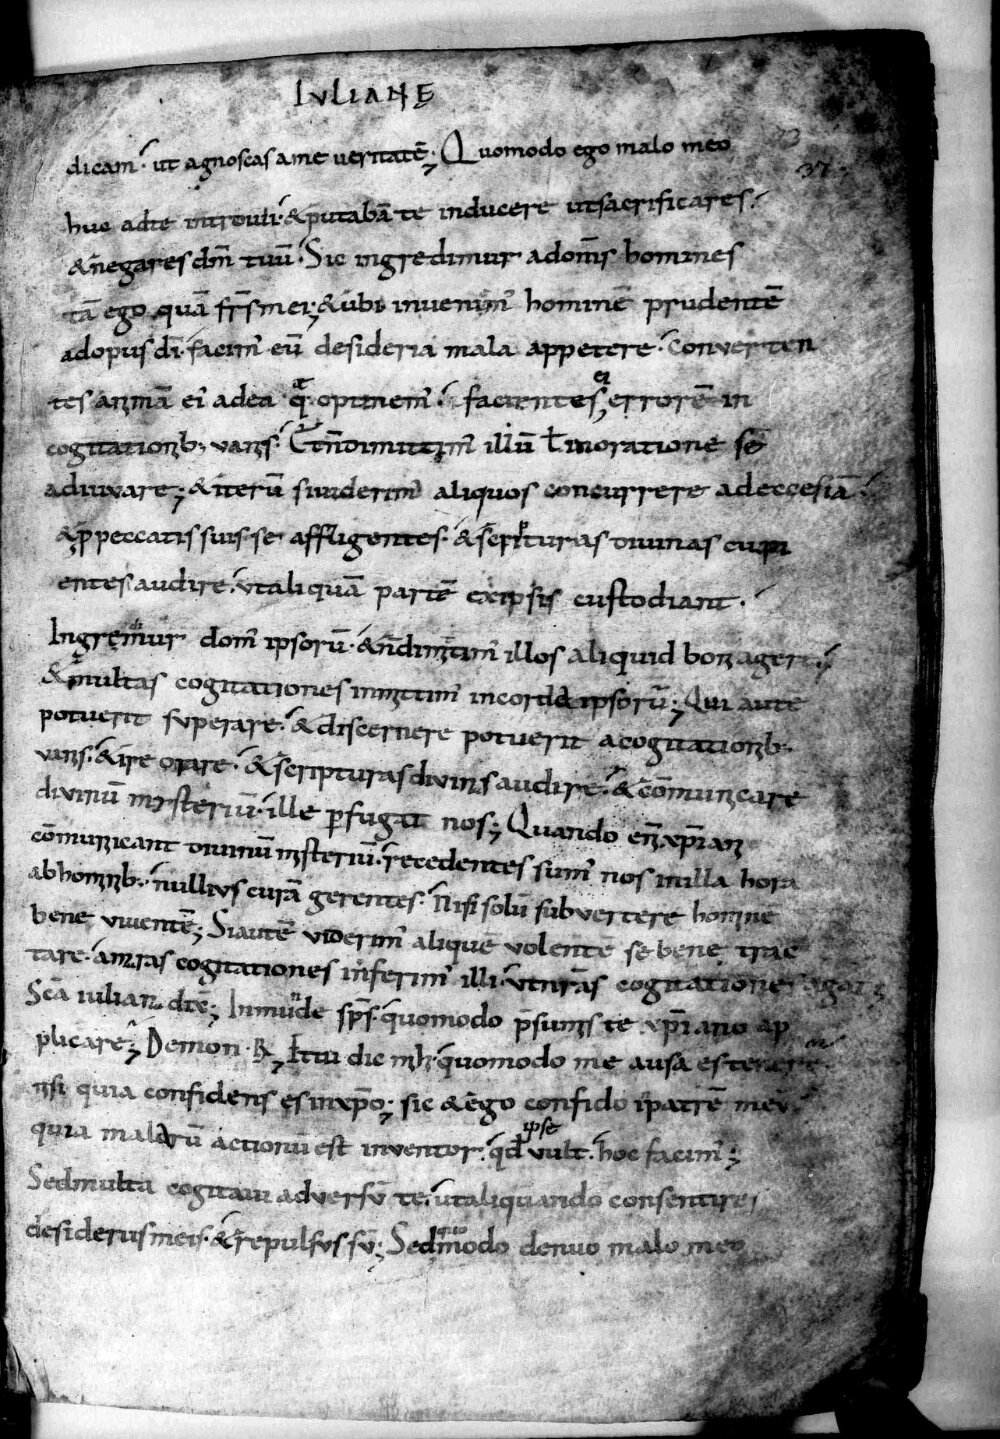 IULIANĘ
73
37.
dicam. ut agnoscas a me veritatē; Quomodo ego malo meo
huc ad te introivi. & putabā te inducere ut sacrificares.
& negares dm̄ tuū. Sic ingredimur ad om̄s homines
tā ego quā frs̄ mei; & ubi invenim̄ hominē prudentē
ad opus dī. facim̄ eū desideria mala appetere. converten
tes animā ei' ad ea q̨ optinem̄. facientes ei errorē in
cogitationib; vanis. Et n̄ dimittim̄ illū ł in oratione sē
adiuvare; & iterū si viderim̄ aliquos concurrere ad ecclesiā.
& p̱ peccatis suis se affligentes. & scripturas divinas cupi
entes audire. ut aliquā partē ex ipsis custodiant.
Ingredimur domū ipsorū. & n̄ dimittim̄ illos aliquid boni agere.
& multas cogitationes inmittim̄ in corde ipsorū; Qui autē
potuerit superare. & discernere potuerit a cogitationib;
vanis. & ire orare. & scripturas divinas audire. & cōmunicare
divinū misteriū. ille p̱fugat nos; Quando enī xp̄iani
cōmunicant divinū misteriū. recedentes sum' nos in illa hora
ab hominib;. nullius curā gerentes. Nisi solū subvertere hominē
bene viventē; Si autē viderim̄ aliquē volentē sē bene trac
tare. amaras cogitationes inferim̄ illi. ut nrā̄s cogitationes agat;
Scā iuliana dix̄; Inmunde sps̄. quomodo p̄sumis te xp̄iano ap
plicare; Demon. R̄; Et tu dic mihi. quomodo me ausa es tenere.
nisi quia confidens es in xp̄o; sic & ego confido in patrē meū.
quia malarū actionū est inventor. qd̄ ipse vult. hoc facim̄;
Sed multa cogitavi adversū te. ut aliquando consentires
desideriis meis. & repulsus sū; Sed quomodo denuo malo meo